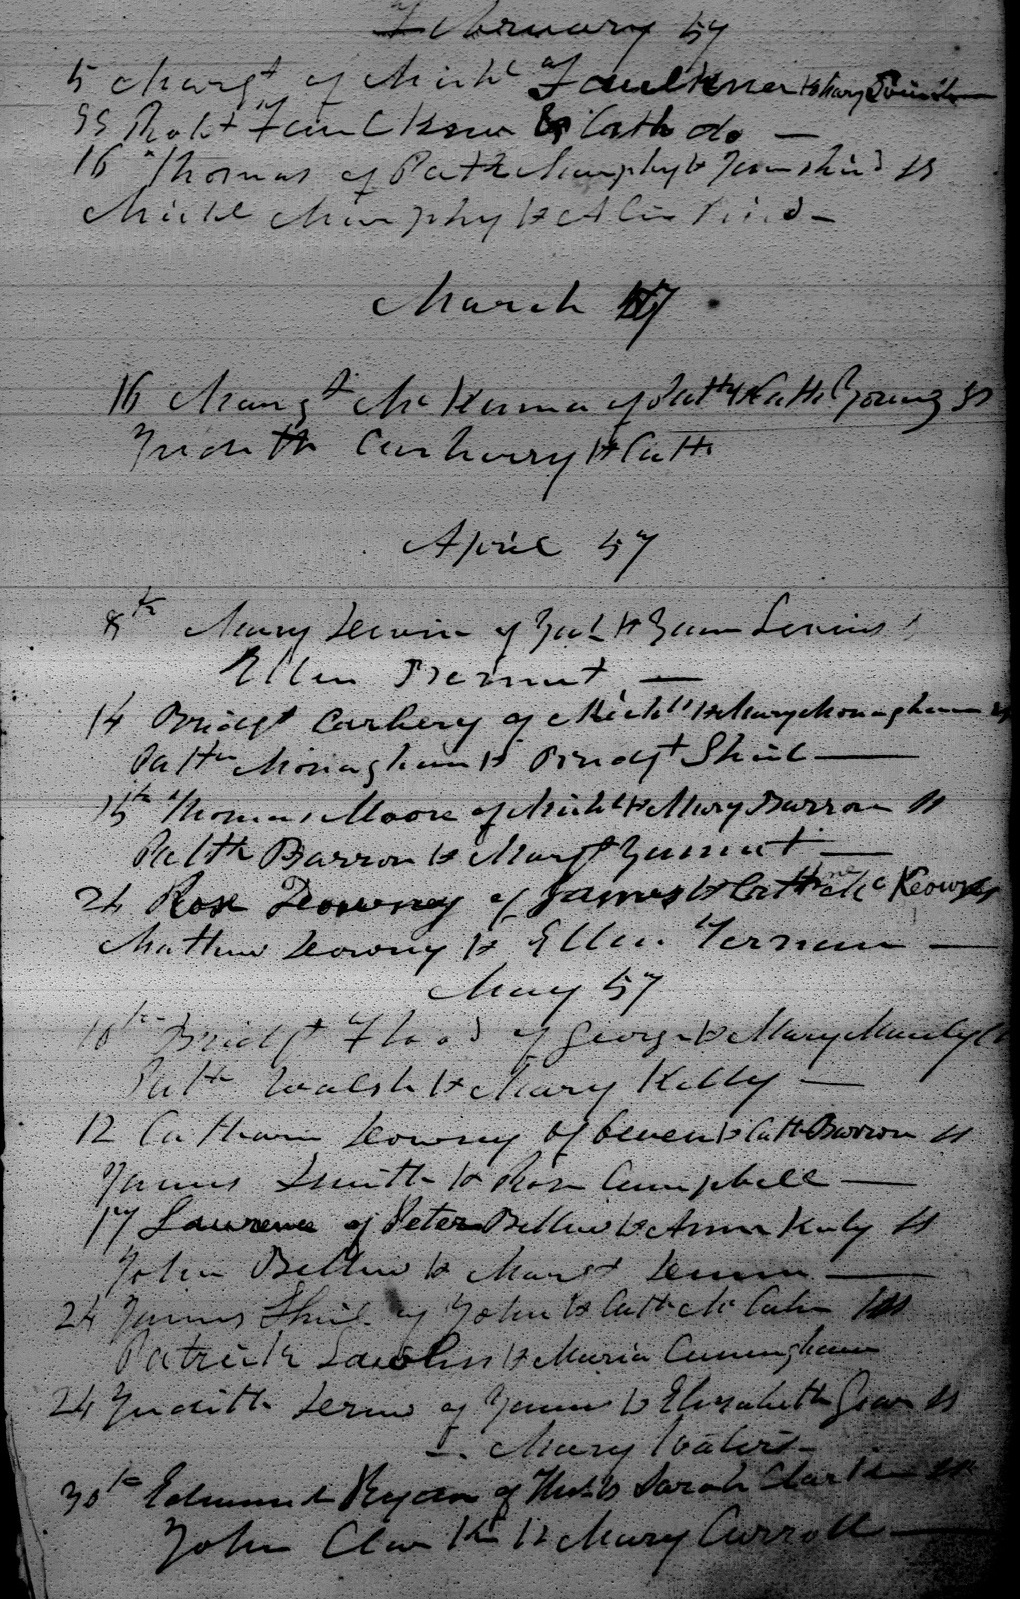 February 57
5 Margt of Michl Faulkner & Mary Smith
SS Robt Faulkner & Cath do —
16 Thomas of Patk Murphy & Jane SS
Michl Murphy & Alice —
March 57
16 Margt McKenna of Patk & Cath Young SS
Judith Carberry & Cath
April 57
8th Mary of & Lewis
Ellen —
14 Bridgt Carbery of Michl & Mary Monaghan SS
Patk Monaghan & Bridgt Shiel —
15th Thomas Moore of Michl & Mary Barron SS
Patk Barron & Margt —
24 Rose Downey of James & Cathne McKeown SS
Matthew Downey & Ellen Ternan —
May 57
10th Bridgt Flood of George & Mary SS
Patk Walsh & Mary Kelly —
12 Catharine Downey of & Cath Barron SS
James Smith & Rose Campbell —
17 Lawrence of Peter Bellew & Anne SS
John Bellew & Margt —
24 James Shiel of John & Cath McCabe SS
Patrick & Maria Cunningham
24 Judith of James & Elizabeth SS
— Mary
30th Edmund of Thos & Sarah Clarke SS
John Clarke & Mary Carroll —